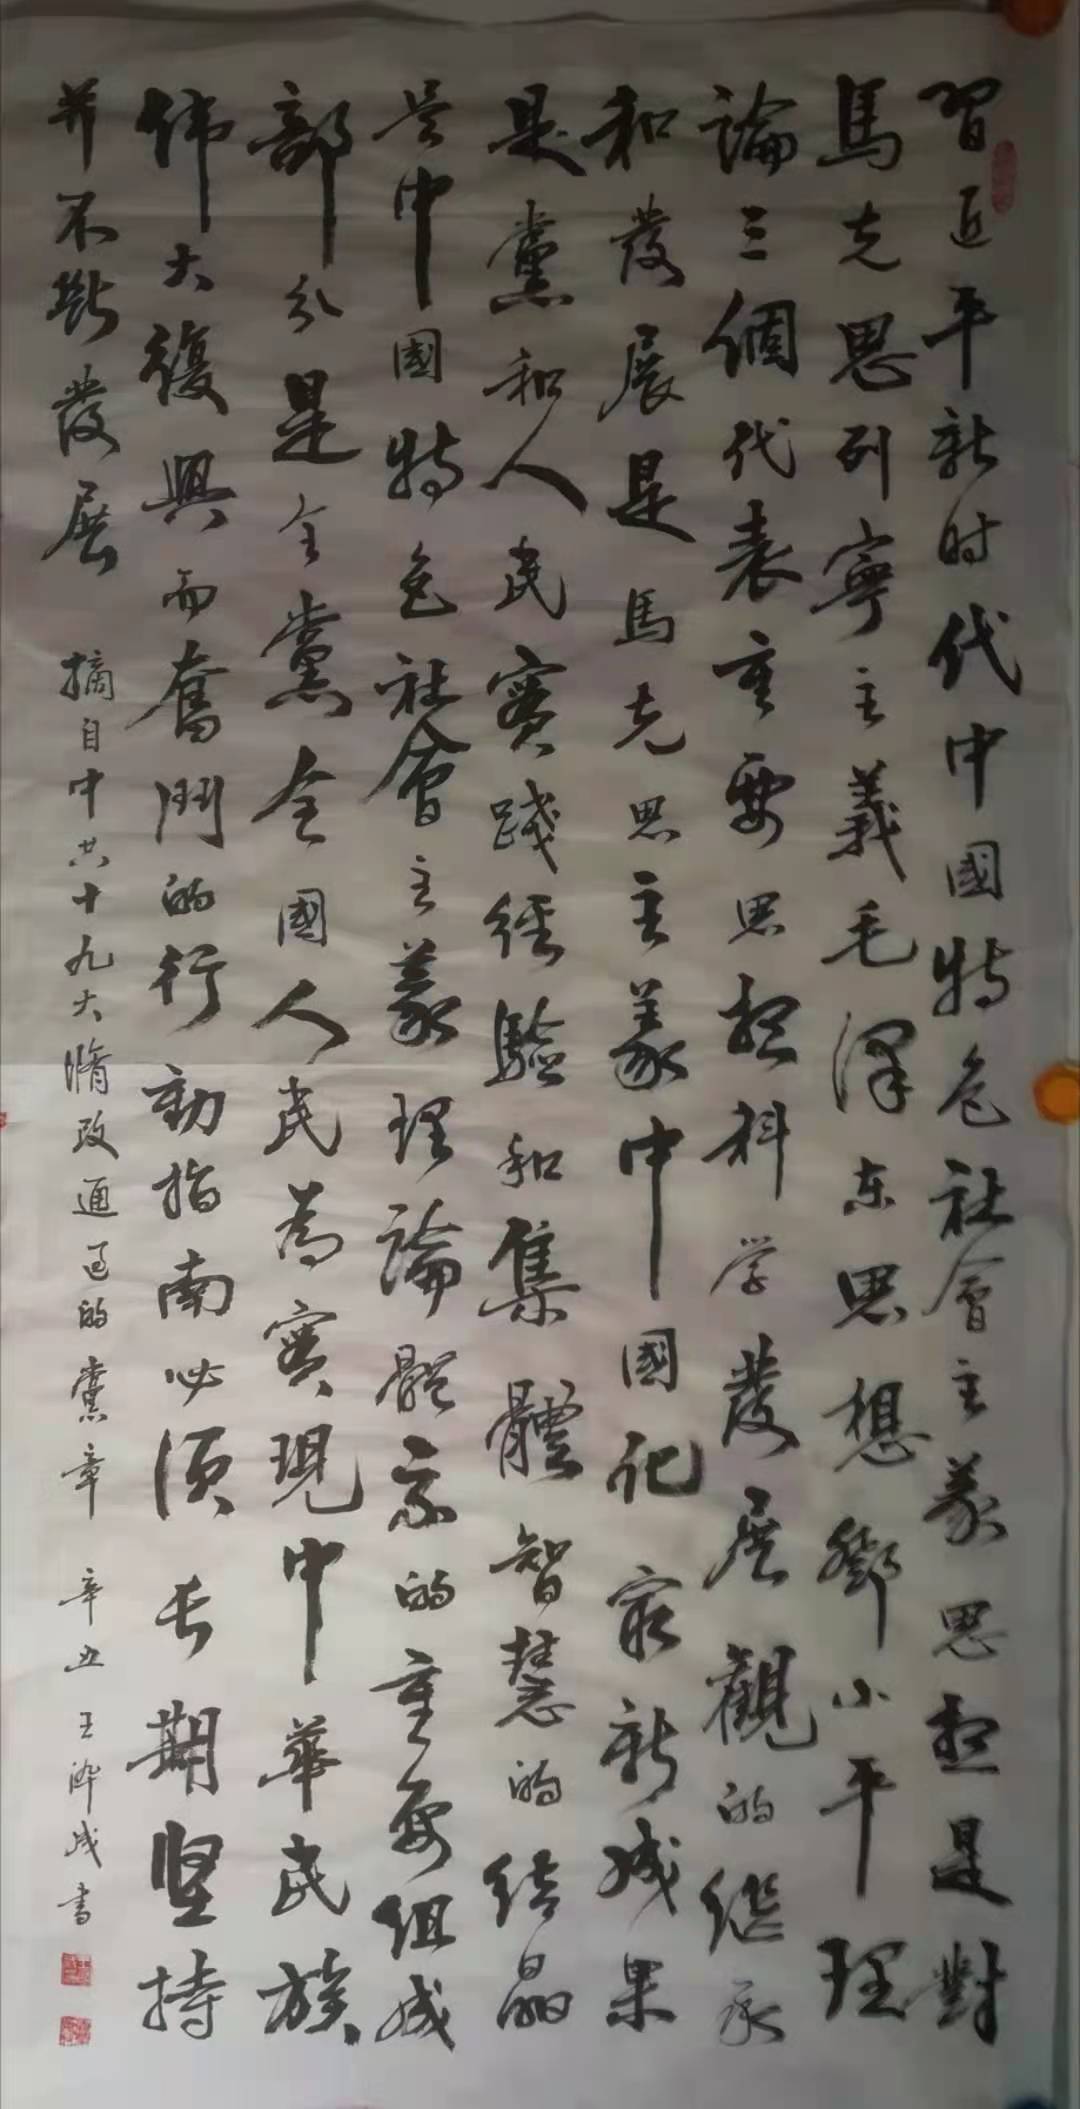 習近平新时代中國特色社會主義思想是對
馬克思列寧主義毛澤东思想鄧小平理
論三個代表重要思想科学發展觀的继承
和發展是馬克思主義中國化最新成果
是黨和人民實踐經驗和集體智慧的结晶
是中國特色社會主義理論體系的重要组成
部分是全黨全國人民為實現中華民族
伟大復興而奮鬥的行動指南必须长期坚持
并不斷發展
摘自中共十九大脩改通过的黨章 辛丑 王 成書